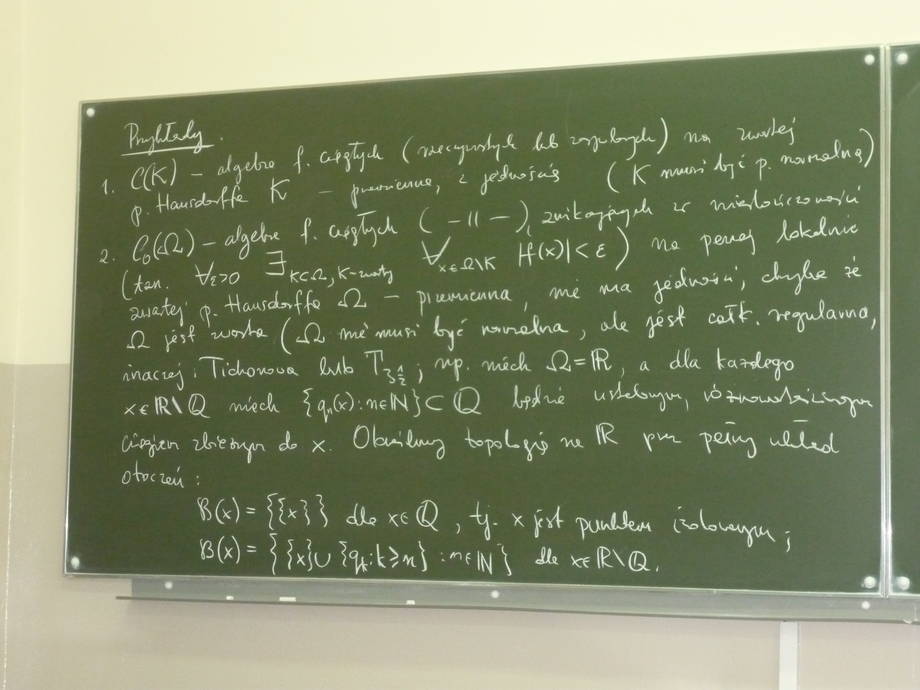 Przykłady.
1. C(K) – algebra f. ciągłych (rzeczywistych lub zespolonych) na zwartej
p. Hausdorffa K – przemienna, z jednością (K musi być p. normalną)
2. C₀(Ω) – algebra f. ciągłych (–||–), znikających w nieskończoności
(tzn. ∀ε>0 ∃K⊂Ω, K-zwarty ∀x∈Ω\K |f(x)|<ε) na pewnej lokalnie
zwartej p. Hausdorffa Ω – przemienna, nie ma jedności, chyba że
Ω jest zwarta (Ω nie musi być normalna, ale jest całk. regularna,
inaczej: Tichonowa lub T₃½; np. niech Ω=ℝ, a dla każdego
x∈ℝ\ℚ niech {qₙ(x):n∈ℕ}⊂ℚ będzie ustalonym, różnowartościowym
ciągiem zbieżnym do x. Określmy topologię na ℝ przez pełny układ
otoczeń:
B(x) = {{x}} dla x∈ℚ, tj. x jest punktem izolowanym;
B(x) = {{x}∪{qₖ:k≥n}:n∈ℕ} dla x∈ℝ\ℚ.